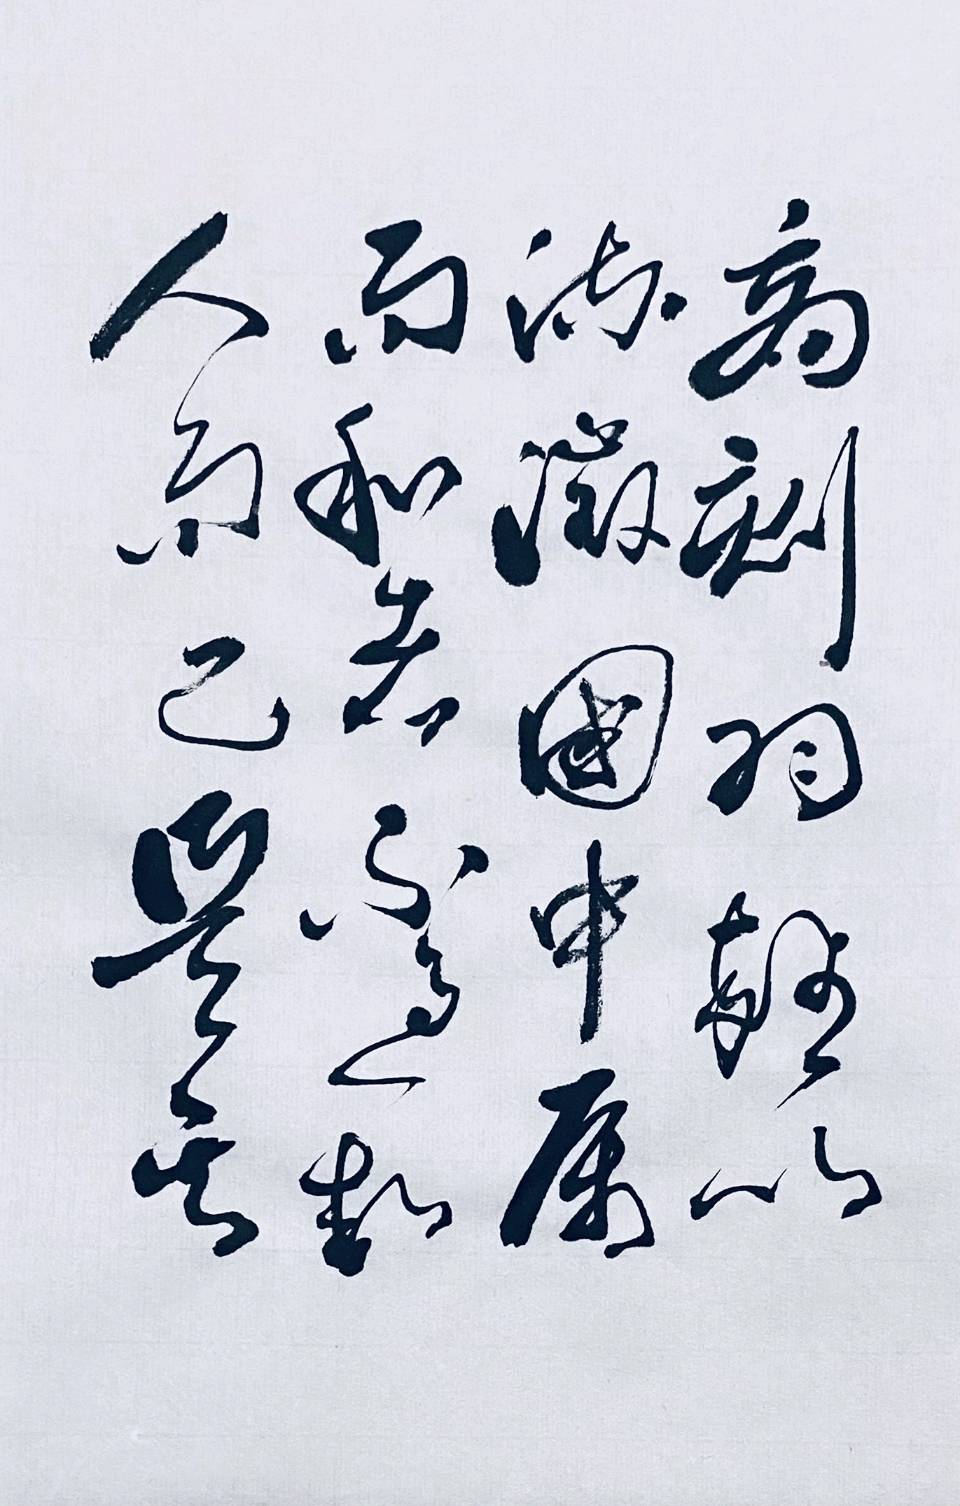 商刻羽雜以
流徵國中属
而和者不過數
人而已是其